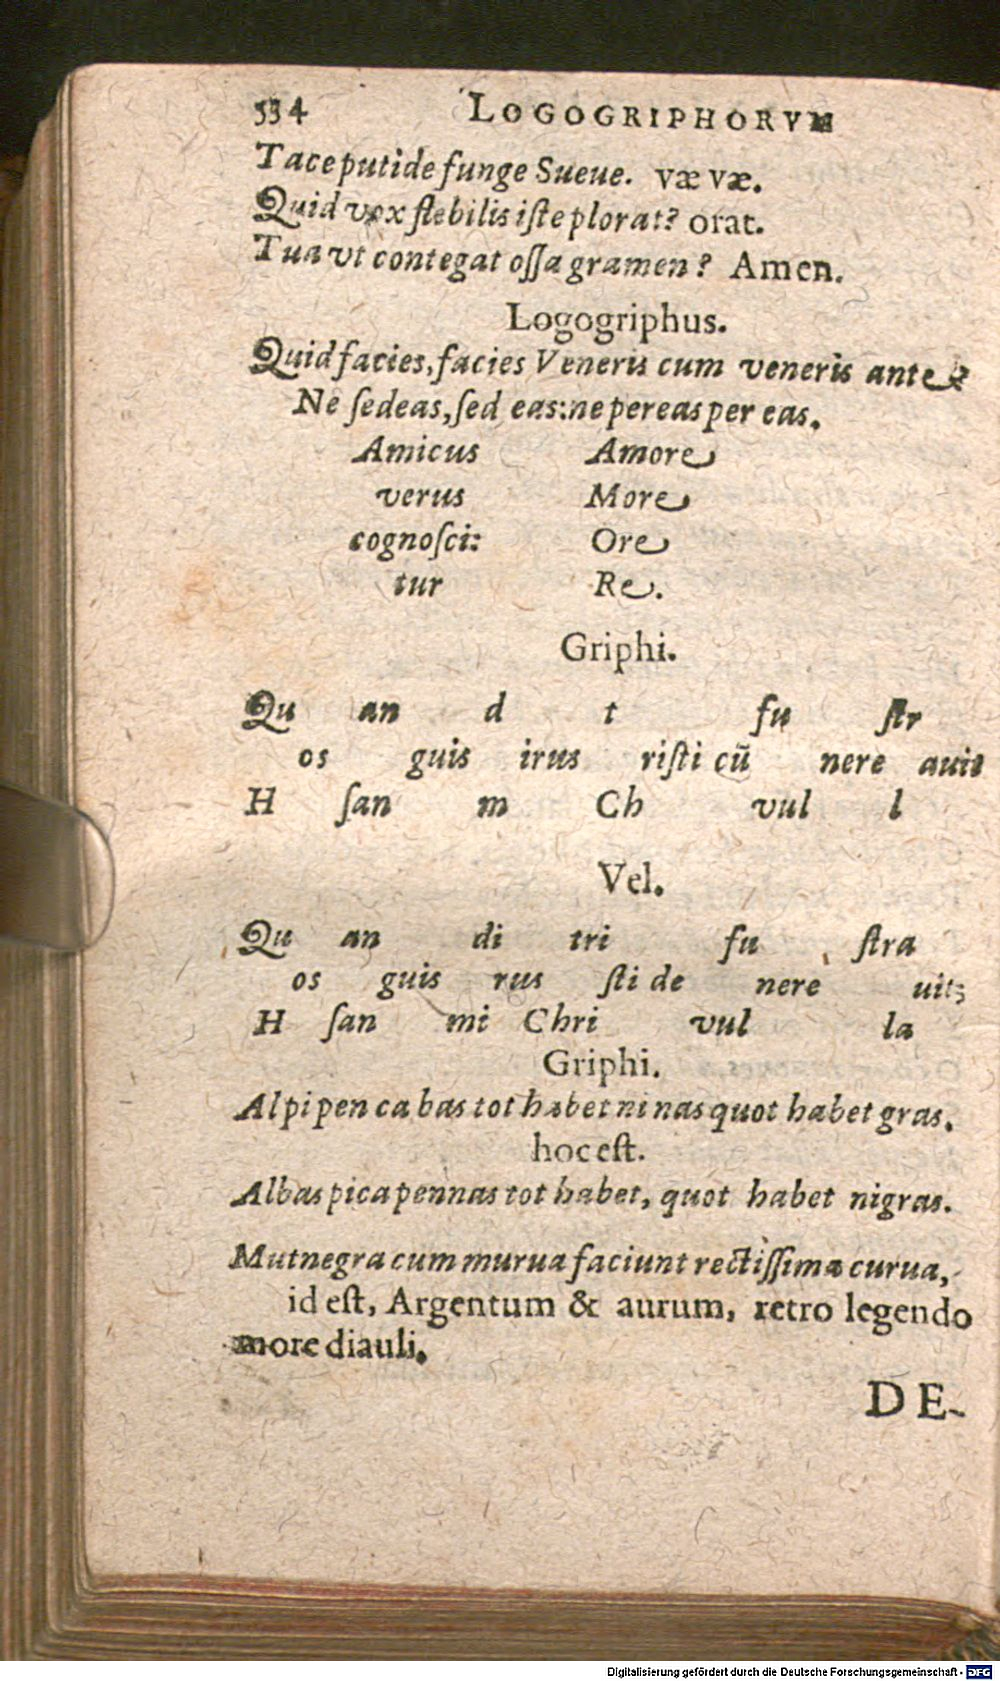 534 LOGOGRIPHORVM
Tace putide funge Sueue. væ væ.
Quid vox flebilis iſte plorat? orat.
Tua vt contegat oſſa gramen? Amen.
Logogriphus.
Quid facies, facies Veneris cum veneris ante?
Ne ſedeas, ſed eas: ne pereas per eas.
Amicus Amore
verus More
cognoſci: Ore
tur Re.
Griphi.
Qu an d t fu ſtr
os guis irus riſti cũ nere auit
H ſan m Ch vul l
Vel.
Qu an di tri fu ſtra
os guis rus ſti de nere uit;
H ſan mi Chri vul la
Griphi.
Al pi pen ca bas tot habet ni nas quot habet gras.
hoc eſt.
Albas pica pennas tot habet, quot habet nigras.
Mutnegra cum murua faciunt rectiſſima curua,
id eſt, Argentum & aurum, retro legendo
more diauli.
DE-
Digitalisierung gefördert durch die Deutsche Forschungsgemeinschaft - DFG